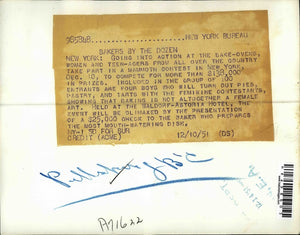 NEW YORK BUREAU
BAKERS BY THE DOZEN
NEW YORK: GOING INTO ACTION AT THE BAKE-OVENS,
WOMEN AND TEEN-AGERS FROM ALL OVER THE COUNTRY
TAKE PART IN A MAMMOTH CONTEST IN NEW YORK,
DEC. 10, TO COMPETE FOR MORE THAN $138,000
IN PRIZES. INCLUDED IN THE GROUP OF 100
ENTRANTS ARE FOUR BOYS WHO WILL TURN OUT PIES,
PASTRY, AND TARTS WITH THE FEMININE CONTESTANTS,
SHOWING THAT BAKING IS NOT ALTOGETHER A FEMALE
ART. HELD AT THE WALDORF-ASTORIA HOTEL, THE
EVENT WILL BE CLIMAXED BY THE PRESENTATION
OF A $25,000 CHECK TO THE BAKER WHO PREPARES
THE MOST MOUTH-WATERING DISH.
NY-1 BD FOR BUR
CREDIT (ACME) 12/10/51 (DS)
A71622